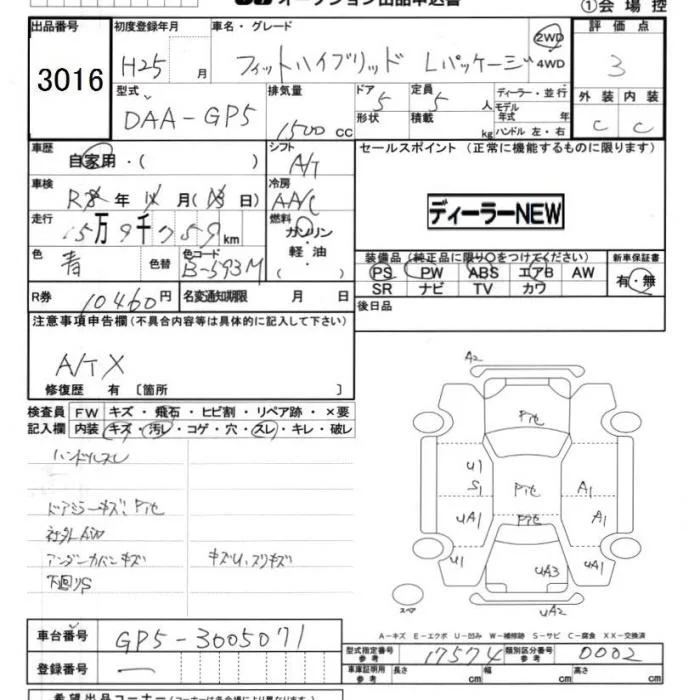 オークション出品申込書
①会場控
出品番号
3016
初度登録年月
H25 月
車名・グレード
フィットハイブリッド Lパッケージ
2WD
4WD
評価点
3
型式
DAA-GP5
排気量
1500 cc
ドア
5
形状
定員
5 人
積載
kg
ディーラー・並行
モデル
年式 年
ハンドル 左・右
外装 内装
C C
車歴
自家用・( )
シフト
A/T
セールスポイント (正常に機能するものに限ります)
ディーラーNEW
車検
年 月( 日)
冷房
AAC
走行
15万9千759km
燃料
ガソリン
軽・油
色
青
色替
色コード
B-593M
装備品(純正品に限り○をつけてください)
PS PW ABS エアB AW
SR ナビ TV カワ
新車保証書
有・無
R券
10460円
名変通知期限 月 日
後日品
注意事項申告欄(不具合内容等は具体的に記入して下さい)
A/T X
修復歴 有 〔箇所 〕
検査員
記入欄
FW キズ・飛石・ヒビ割・リペア跡・×要
内装 キズ・汚レ・コゲ・穴・スレ・キレ・破レ
ハンドルスレ
ドアミラーキズ! Pアセ
社外AW
アンダーカバーキズ
キズU、スリキズ
下回りS
A2
Pアセ
U1
S1
Pアセ
A1
UA1
Pアセ
A1
U1
UA3
UA1
UA2
スペア
A-キズ E-エクボ U-凹み W-補修跡 S-サビ C-腐食 XX-交換済
車台番号
GP5-3005071
型式指定番号
参考
17574
類別区分番号
参考
0002
登録番号
車庫証明用
参考
長さ cm
幅 cm
高さ cm
希望出品コーナー